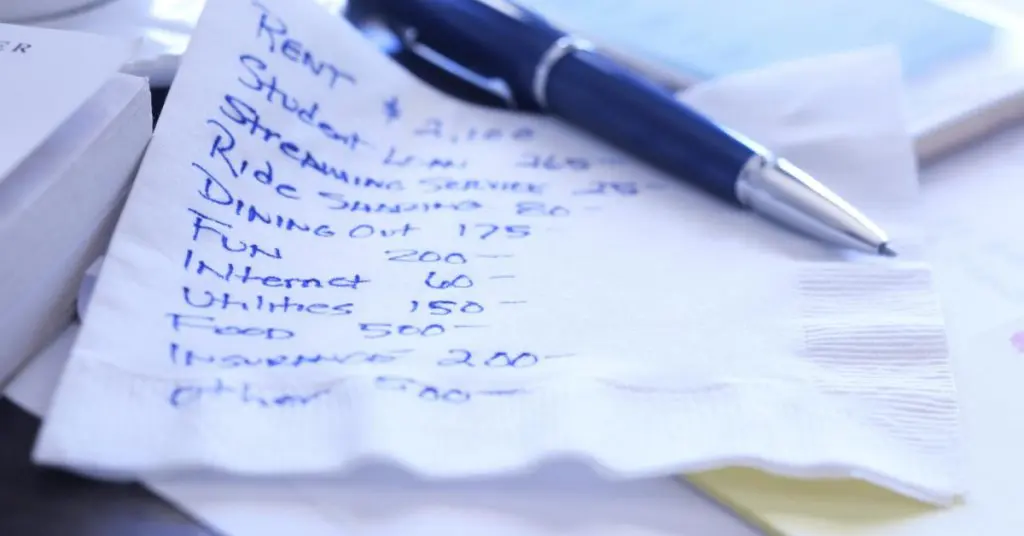 ER
RENT $ 2,100
Student Loan 265-
Streaming Service 25-
Ride Sharing 80-
Dining Out 175-
Fun 200-
Internet 60-
Utilities 150-
Food 500-
Insurance 200-
other 500-